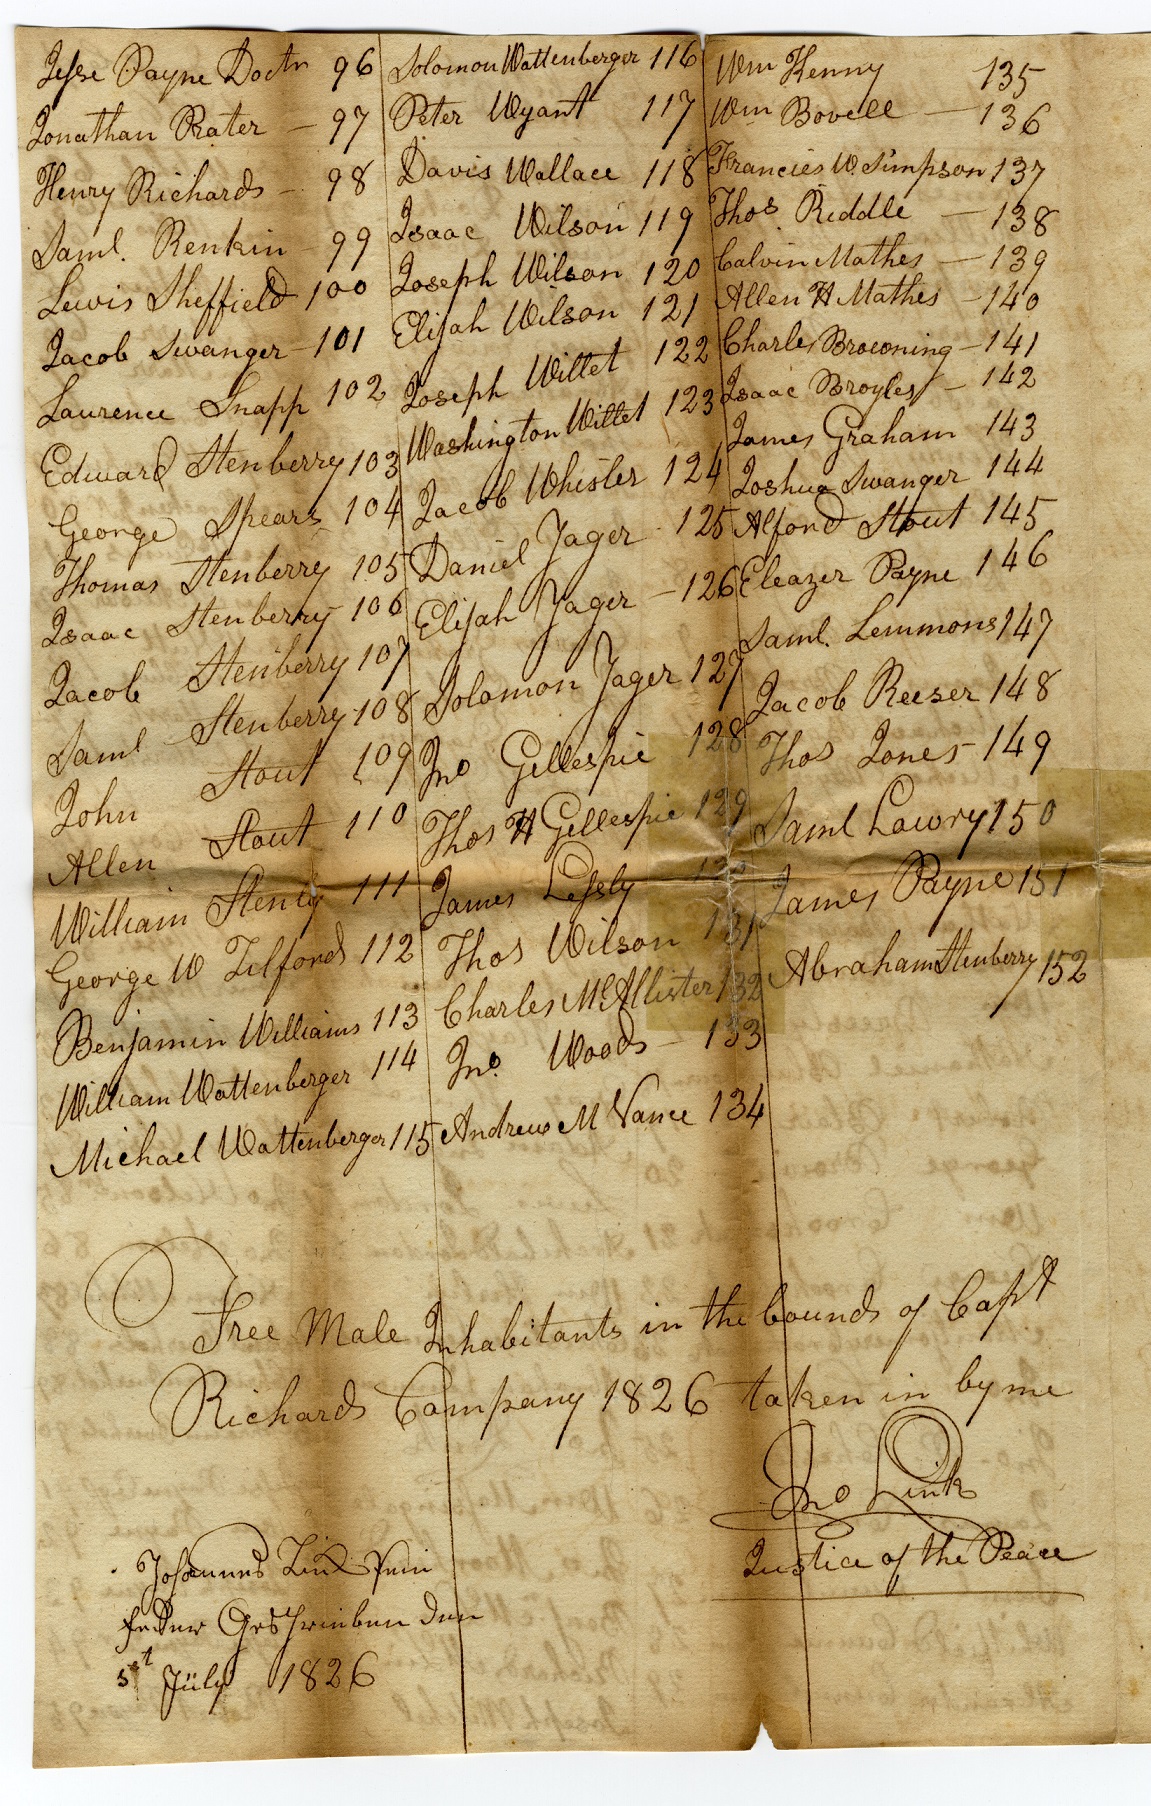 Jesse Payne Doctr 96
Jonathan Prater — 97
Henry Richards — 98
Saml. Renkin — 99
Lewis Sheffield 100
Jacob Swanger — 101
Laurence Snapp 102
Edward Stenberry 103
George Spears 104
Thomas Stenberry 105
Isaac Stenberry 106
Jacob Stenberry 107
Saml Stenberry 108
John Stout 109
Allen Stout 110
William 111
George W Telford 112
Benjamin Williams 113
William Wattenberger 114
Michael Wattenberger 115
Solomon Wattenberger 116
Peter Wyant 117
Davis Wallace 118
Isaac Wilson 119
Joseph Wilson 120
Elijah Wilson 121
Joseph Willet 122
Washington Willet 123
Jacob Whisler 124
Daniel Jager 125
Elijah Jager — 126
Solomon Jager 127
Jno Gellespie 128
Thos H Gellespie 129
James Lessly 130
Thos Wilson 131
Charles McAllister 132
Jno. Woods — 133
Andrew M Vance 134
Wm Kenny 135
Wm Bovell — 136
Francies W. Simpson 137
Thos. Riddle — 138
Calvin Mathes — 139
Allen H Mathes — 140
Charles Browning — 141
Isaac Broyles — 142
James Graham 143
Joshua Swanger 144
Alford Stout 145
Eleazer Payne 146
Saml. Lemmons 147
Jacob Reeser 148
Thos Jones — 149
Saml Lowry 150
James Payne 151
Abraham Stenberry 152
Free Male Inhabitants in the bounds of Capt
Richards Company 1826 taken in by me
Jno Link
Justice of the Peace
Johannes Link Sein
feder Geschrieben den
5t July 1826